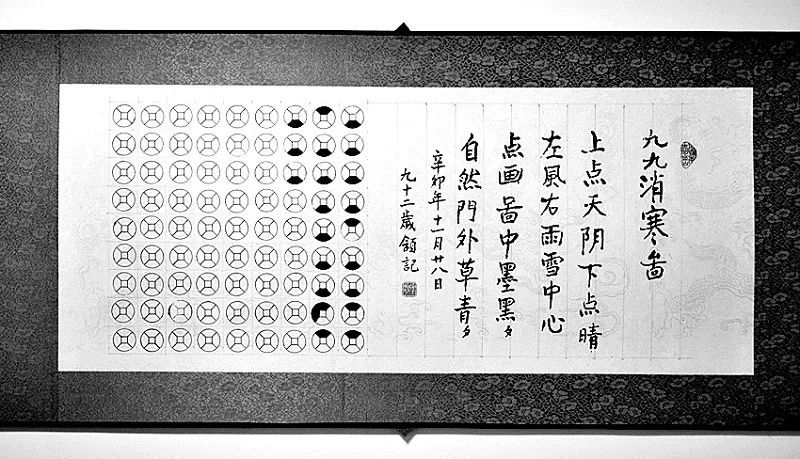 九九消寒畵
上点天阴下点晴
左風右雨雪中心
点画畵中墨黑夕
自然門外草青夕
辛卯年十一月廿八日
九十二歲領記